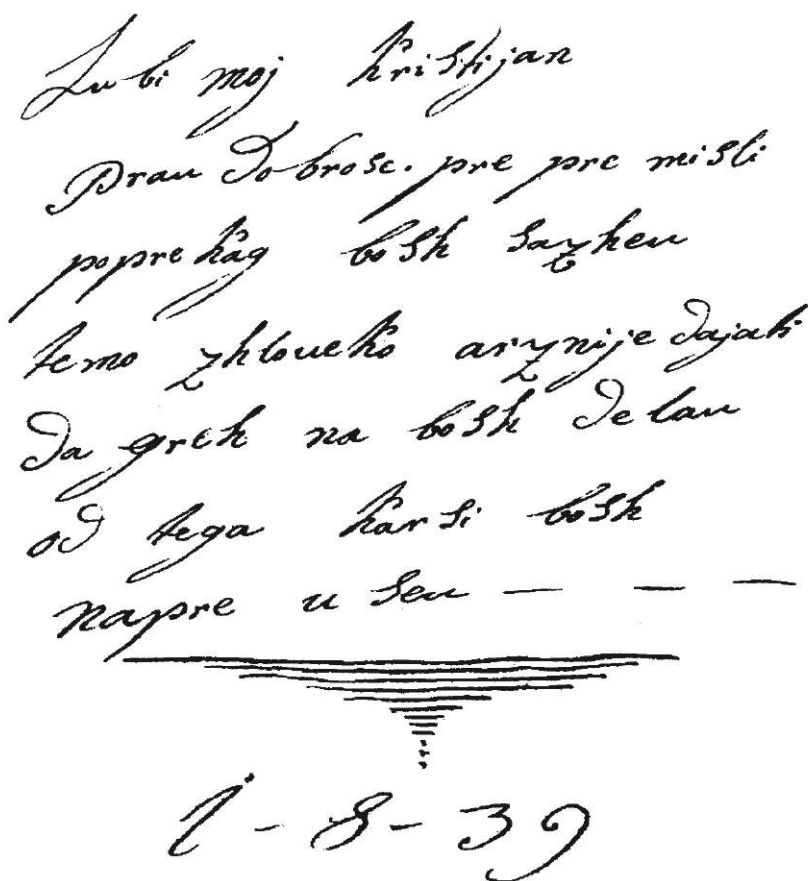 Lubi moj kristijan
Prau Dobrose. pre pre misli
popre kag bosh sazheu
temo zhloueko arznije dajati
Da greh na bosh Delau
oD tega kar si bosh
napre u seu — — —
1-8-39